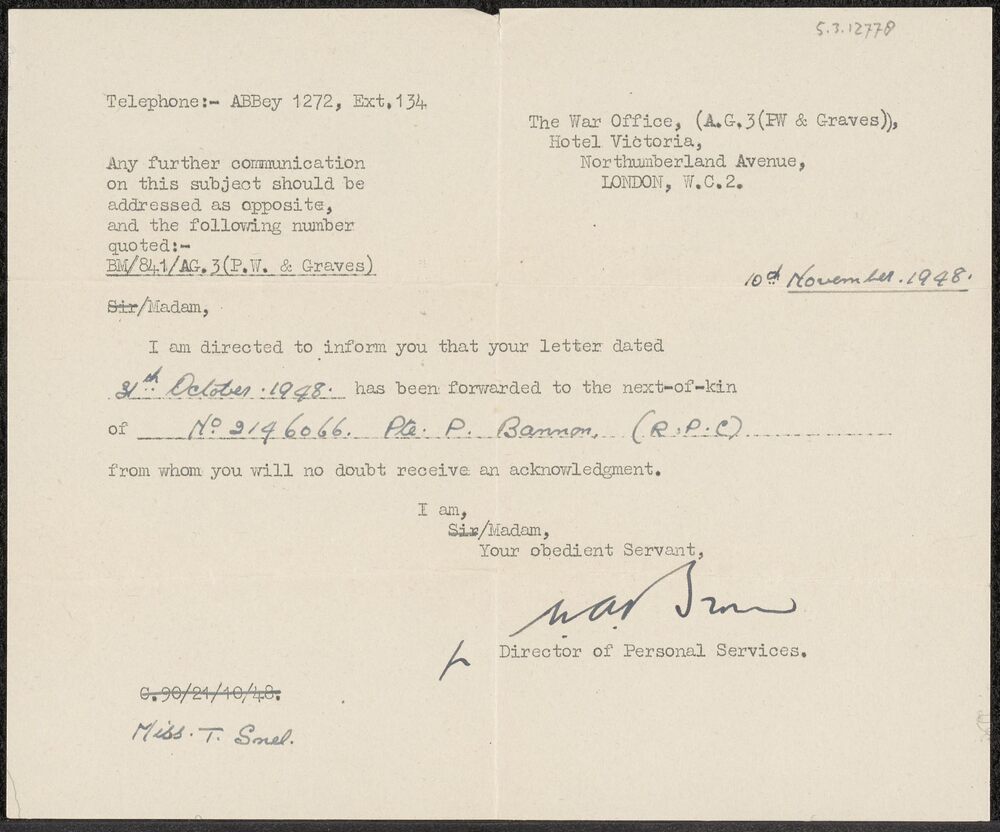 5.3.12778
Telephone:- ABBey 1272, Ext.134
The War Office, (A.G.3(PW & Graves)),
Hotel Victoria,
Northumberland Avenue,
LONDON, W.C.2.
Any further communication
on this subject should be
addressed as opposite,
and the following number
quoted:-
BM/841/AG.3(P.W. & Graves)
10th November.1948.
Sir/Madam,
I am directed to inform you that your letter dated
31th October.1948. has been forwarded to the next-of-kin
of No 2146066. Pte. P. Bannon, (R.P.C)
from whom you will no doubt receive an acknowledgment.
I am,
Sir/Madam,
Your obedient Servant,
Director of Personal Services.
C.90/21/10/48.
Miss. T. Snel.